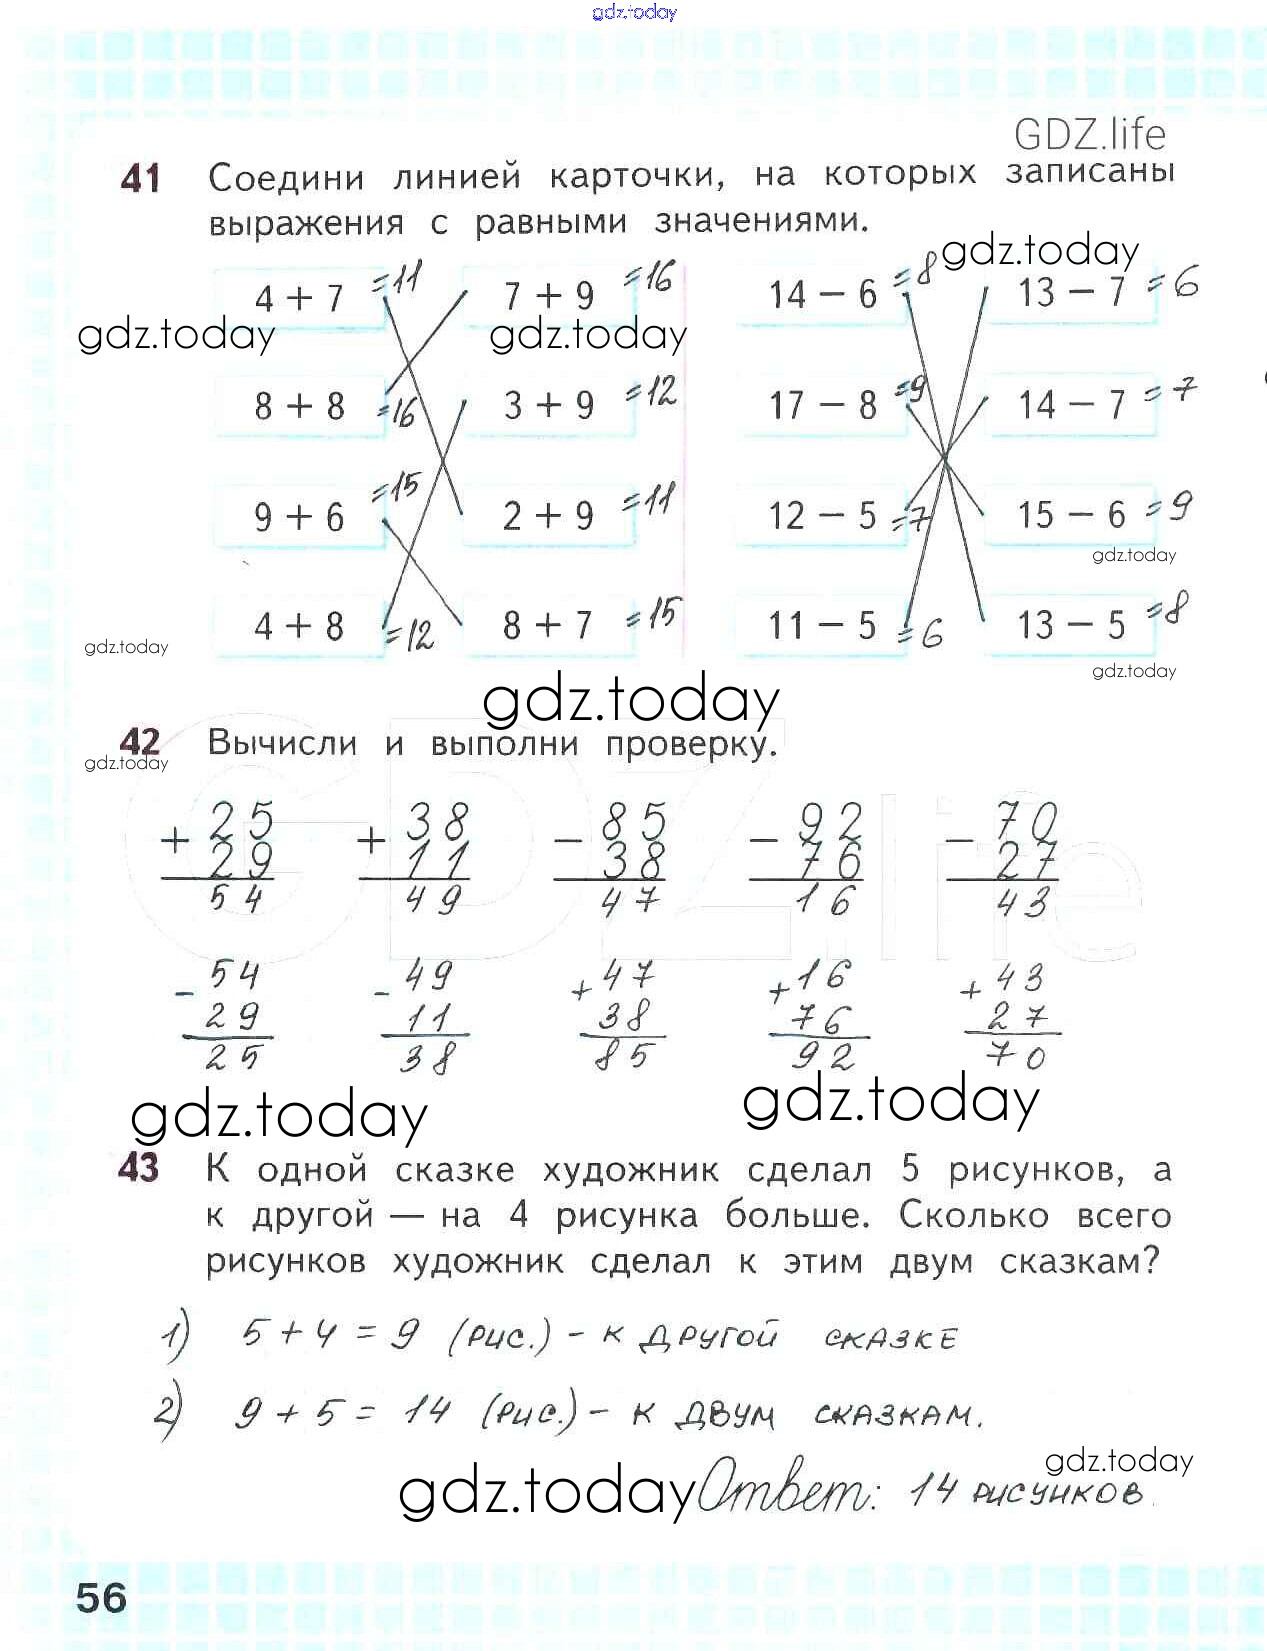 gdz.today
GDZ.life
41 Соедини линией карточки, на которых записаны
выражения с равными значениями.
gdz.today
4 + 7 =11 7 + 9 =16 14 − 6 =8 13 − 7 =6
gdz.today gdz.today
8 + 8 =16 3 + 9 =12 17 − 8 =9 14 − 7 =7
9 + 6 =15 2 + 9 =11 12 − 5 =7 15 − 6 =9
gdz.today
4 + 8 =12 8 + 7 =15 11 − 5 =6 13 − 5 =8
gdz.today
gdz.today
gdz.today
42 Вычисли и выполни проверку.
gdz.today
GDZ.life
+ 25 + 38 − 85 − 92 − 70
29 11 38 76 27
54 49 47 16 43
- 54 - 49 + 47 + 16 + 43
29 11 38 76 27
25 38 85 92 70
gdz.today gdz.today
43 К одной сказке художник сделал 5 рисунков, а
к другой — на 4 рисунка больше. Сколько всего
рисунков художник сделал к этим двум сказкам?
1) 5 + 4 = 9 (рис.) - к другой сказке
2) 9 + 5 = 14 (рис.) - к двум сказкам.
gdz.today
gdz.today Ответ: 14 рисунков.
56